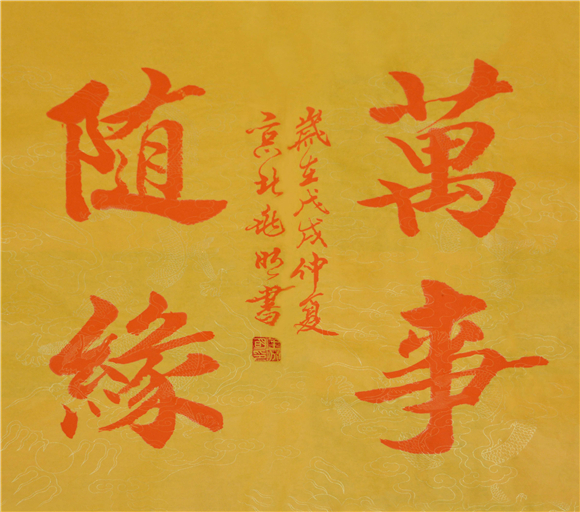 萬事
随緣
歲在戊戌仲夏
京北兆明書